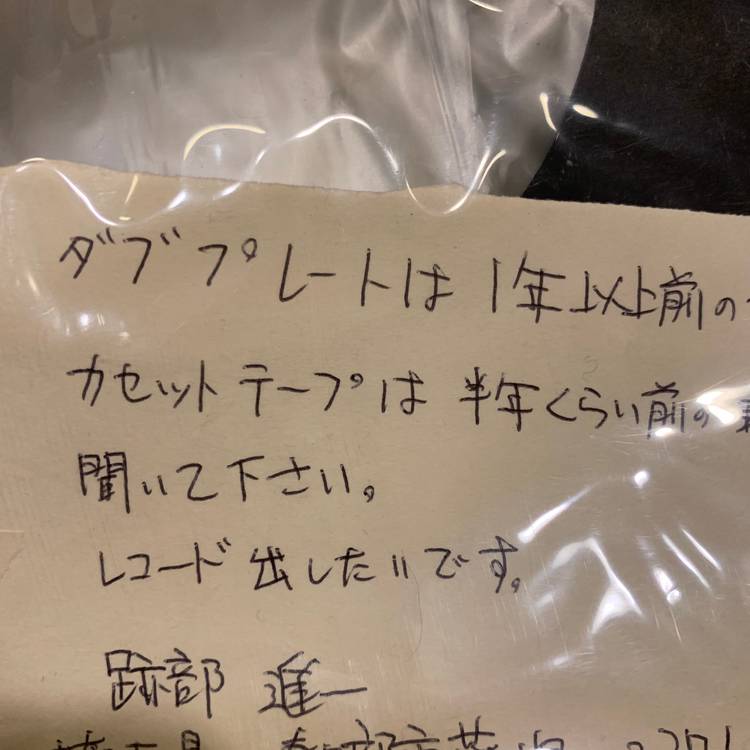 ダブプレートは 1年以上前の
カセットテープは 半年くらい前の
聞いて下さい。
レコード出したいです。
跡部 進一
埼玉県 春日部市